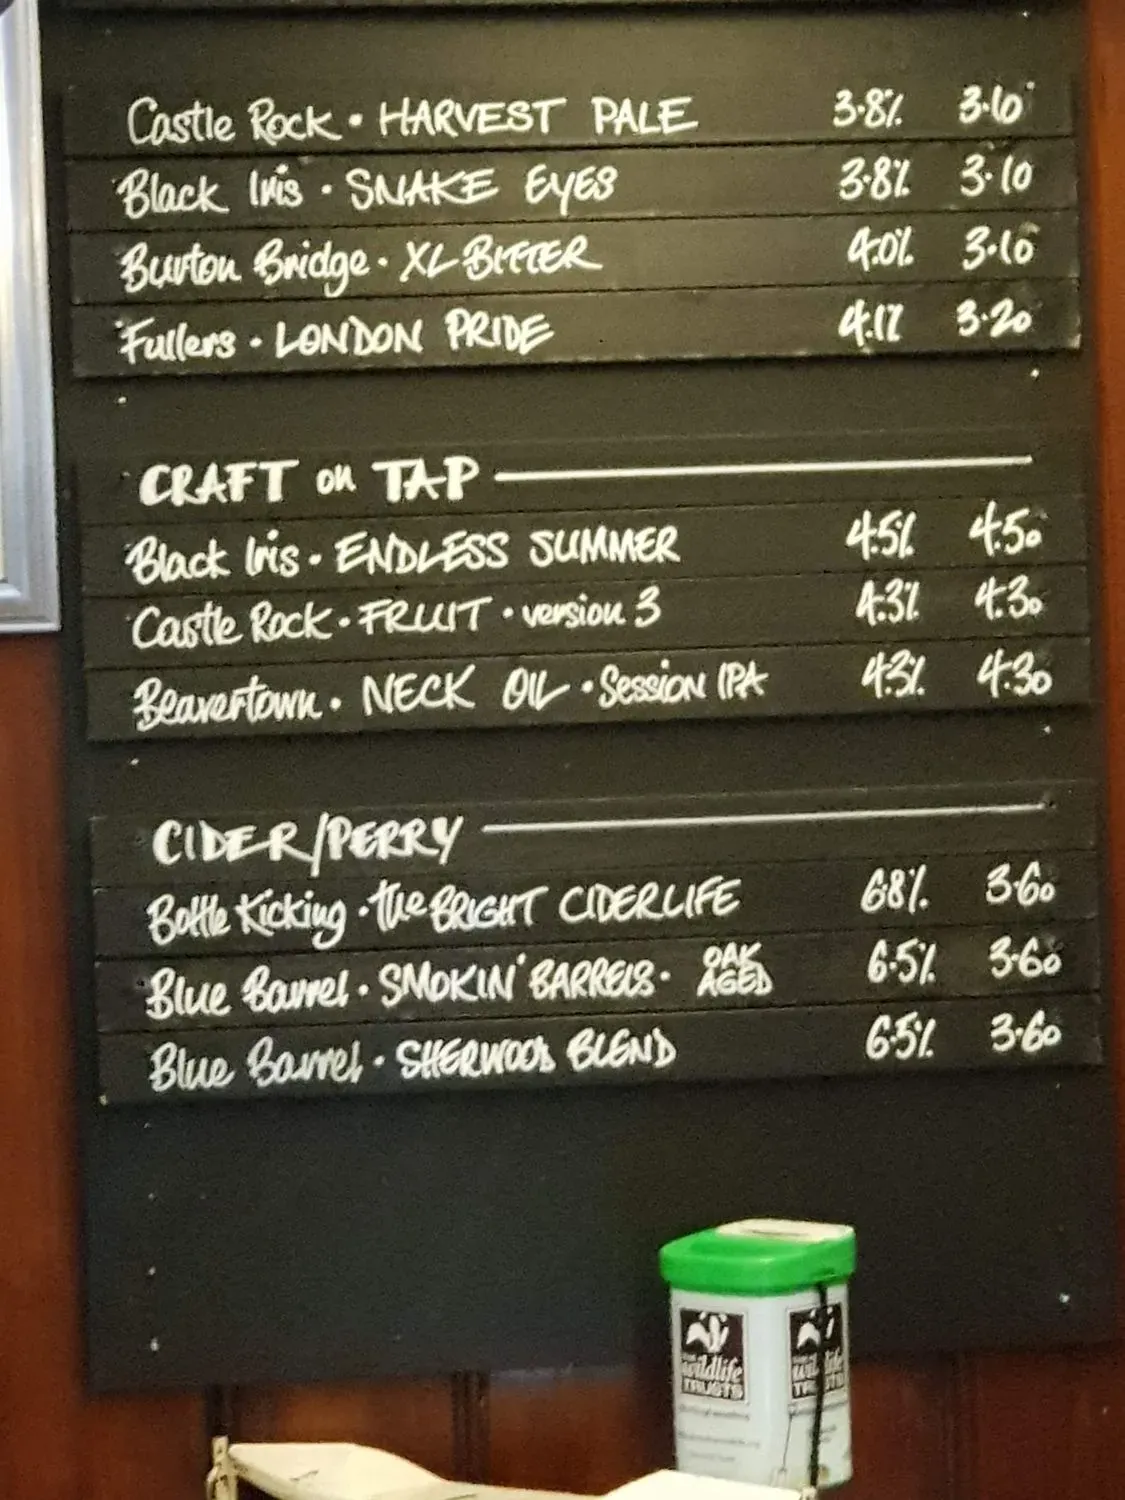 Castle Rock • HARVEST PALE 3.8% 3.10
Black Iris • SNAKE EYES 3.8% 3.10
Burton Bridge • XL BITTER 4.0% 3.10
Fullers • LONDON PRIDE 4.1% 3.20
CRAFT on TAP
Black Iris • ENDLESS SUMMER 4.5% 4.50
Castle Rock • FRUIT • version 3 4.3% 4.30
Beavertown • NECK OIL • Session IPA 4.3% 4.30
CIDER/PERRY
Bottle Kicking • the BRIGHT CIDERLIFE 6.8% 3.60
Blue Barrel • SMOKIN' BARRELS • OAK AGED 6.5% 3.60
Blue Barrel • SHERWOOD BLEND 6.5% 3.60
wildlife
TRUSTS